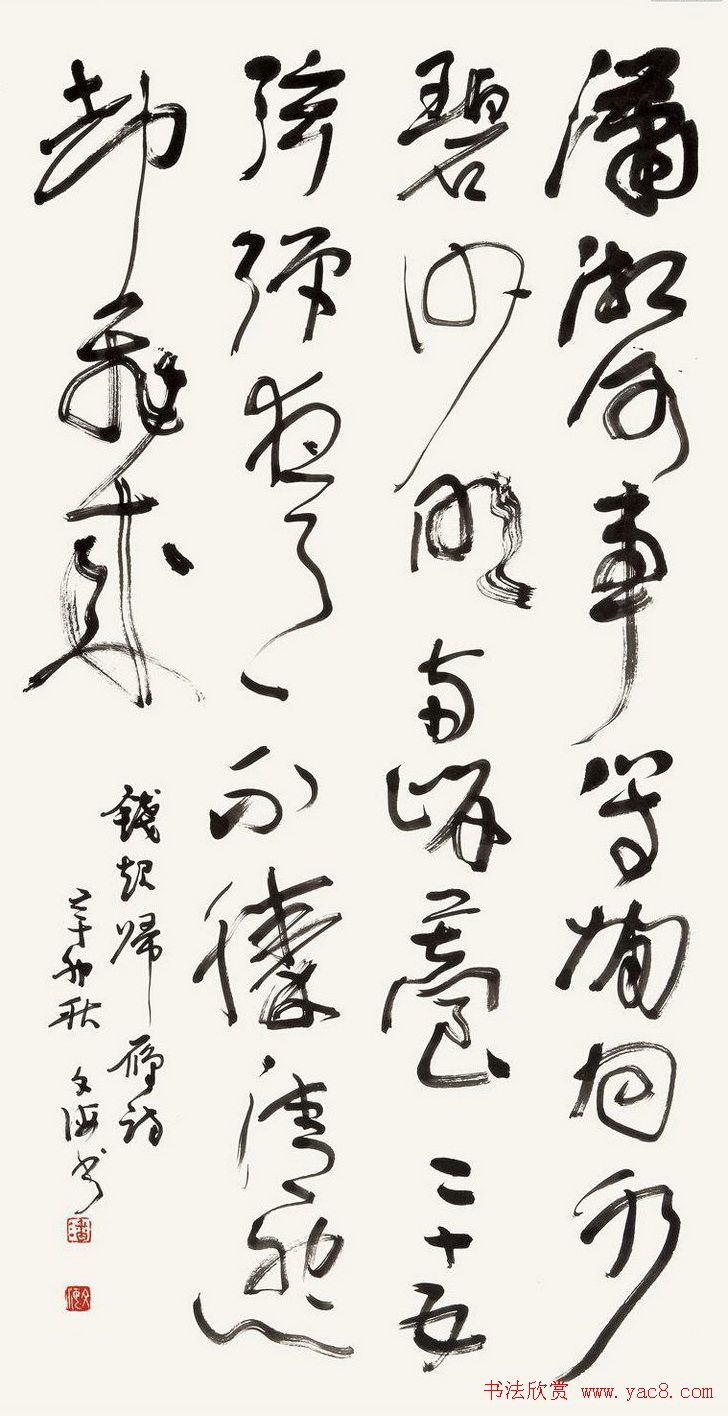 瀟湘何事等閒回水
碧沙明兩岸苔二十五
弦彈夜月不勝清怨
却飛來
錢起歸雁詩
辛卯秋 文海书
书法欣赏 www.yac8.com